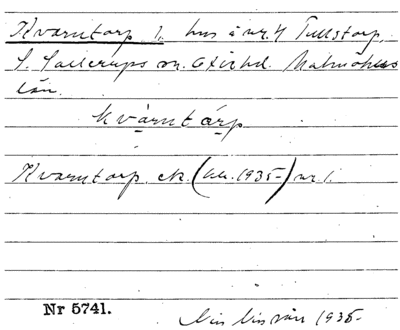 Kvarntorp 1. hus å nr. 4 Tullstorp,
S. Sallerups sn. Oxie hd. Malmöhus
län.
kvä̱rntå̱rp
Kvarntorp ek. (bl. 1935-) nr 1.
Nr 5741.
1935